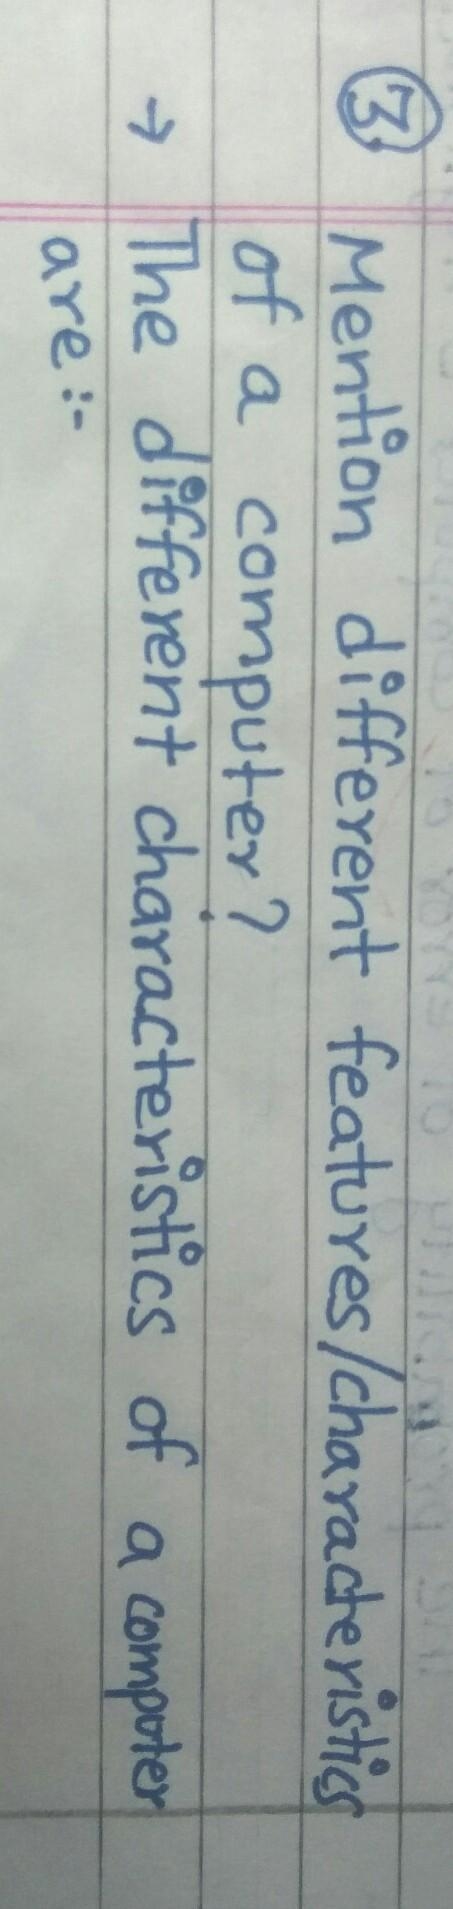 ③ Mention different features/characteristics
of a computer?
→ The different characteristics of a computer
are :-